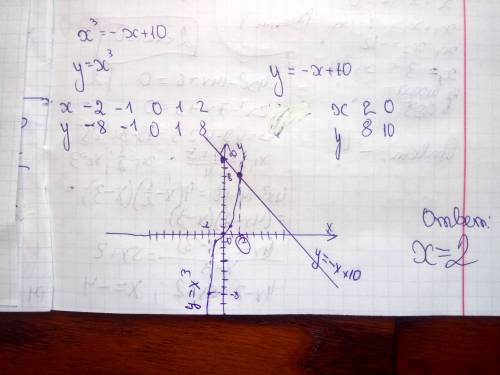 x³=-x+10
y=x³
y=-x+10
x -2 -1 0 1 2
y -8 -1 0 1 8
x 2 0
y 8 10
y
10
8
x
0
2
-8
y=x³
y=-x+10
Ответ:
x=2